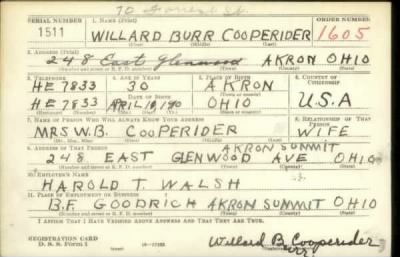 70 Forrest St.
SERIAL NUMBER 1. NAME (Print) ORDER NUMBER
1511 WILLARD BURR COOPERIDER 1605
(First) (Middle) (Last)
2. ADDRESS (Print)
248 East Glenwood AKRON OHIO
(Number and street or R. F. D. number) (Town) (County) (State)
3. TELEPHONE 4. AGE IN YEARS 5. PLACE OF BIRTH 6. COUNTRY OF CITIZENSHIP
HE 7833 30 AKRON
DATE OF BIRTH (Town or county)
HE 7833 APRIL 10, 1910 OHIO U.S.A
(Mo.) (Day) (Yr.) (State or country)
7. NAME OF PERSON WHO WILL ALWAYS KNOW YOUR ADDRESS 8. RELATIONSHIP OF THAT PERSON
MRS W.B. COOPERIDER WIFE
(Mr., Mrs., Miss) (First) (Middle) (Last)
9. ADDRESS OF THAT PERSON AKRON SUMMIT
248 EAST GLENWOOD AVE OHIO
(Number and street or R. F. D. number) (Town) (County) (State)
10. EMPLOYER'S NAME
HAROLD T. WALSH
11. PLACE OF EMPLOYMENT OR BUSINESS
B.F. GOODRICH AKRON SUMMIT OHIO
(Number and street or R. F. D. number) (Town) (County) (State)
I AFFIRM THAT I HAVE VERIFIED ABOVE ANSWERS AND THAT THEY ARE TRUE.
REGISTRATION CARD
D. S. S. Form 1 16—17105 Willard B. Cooperider